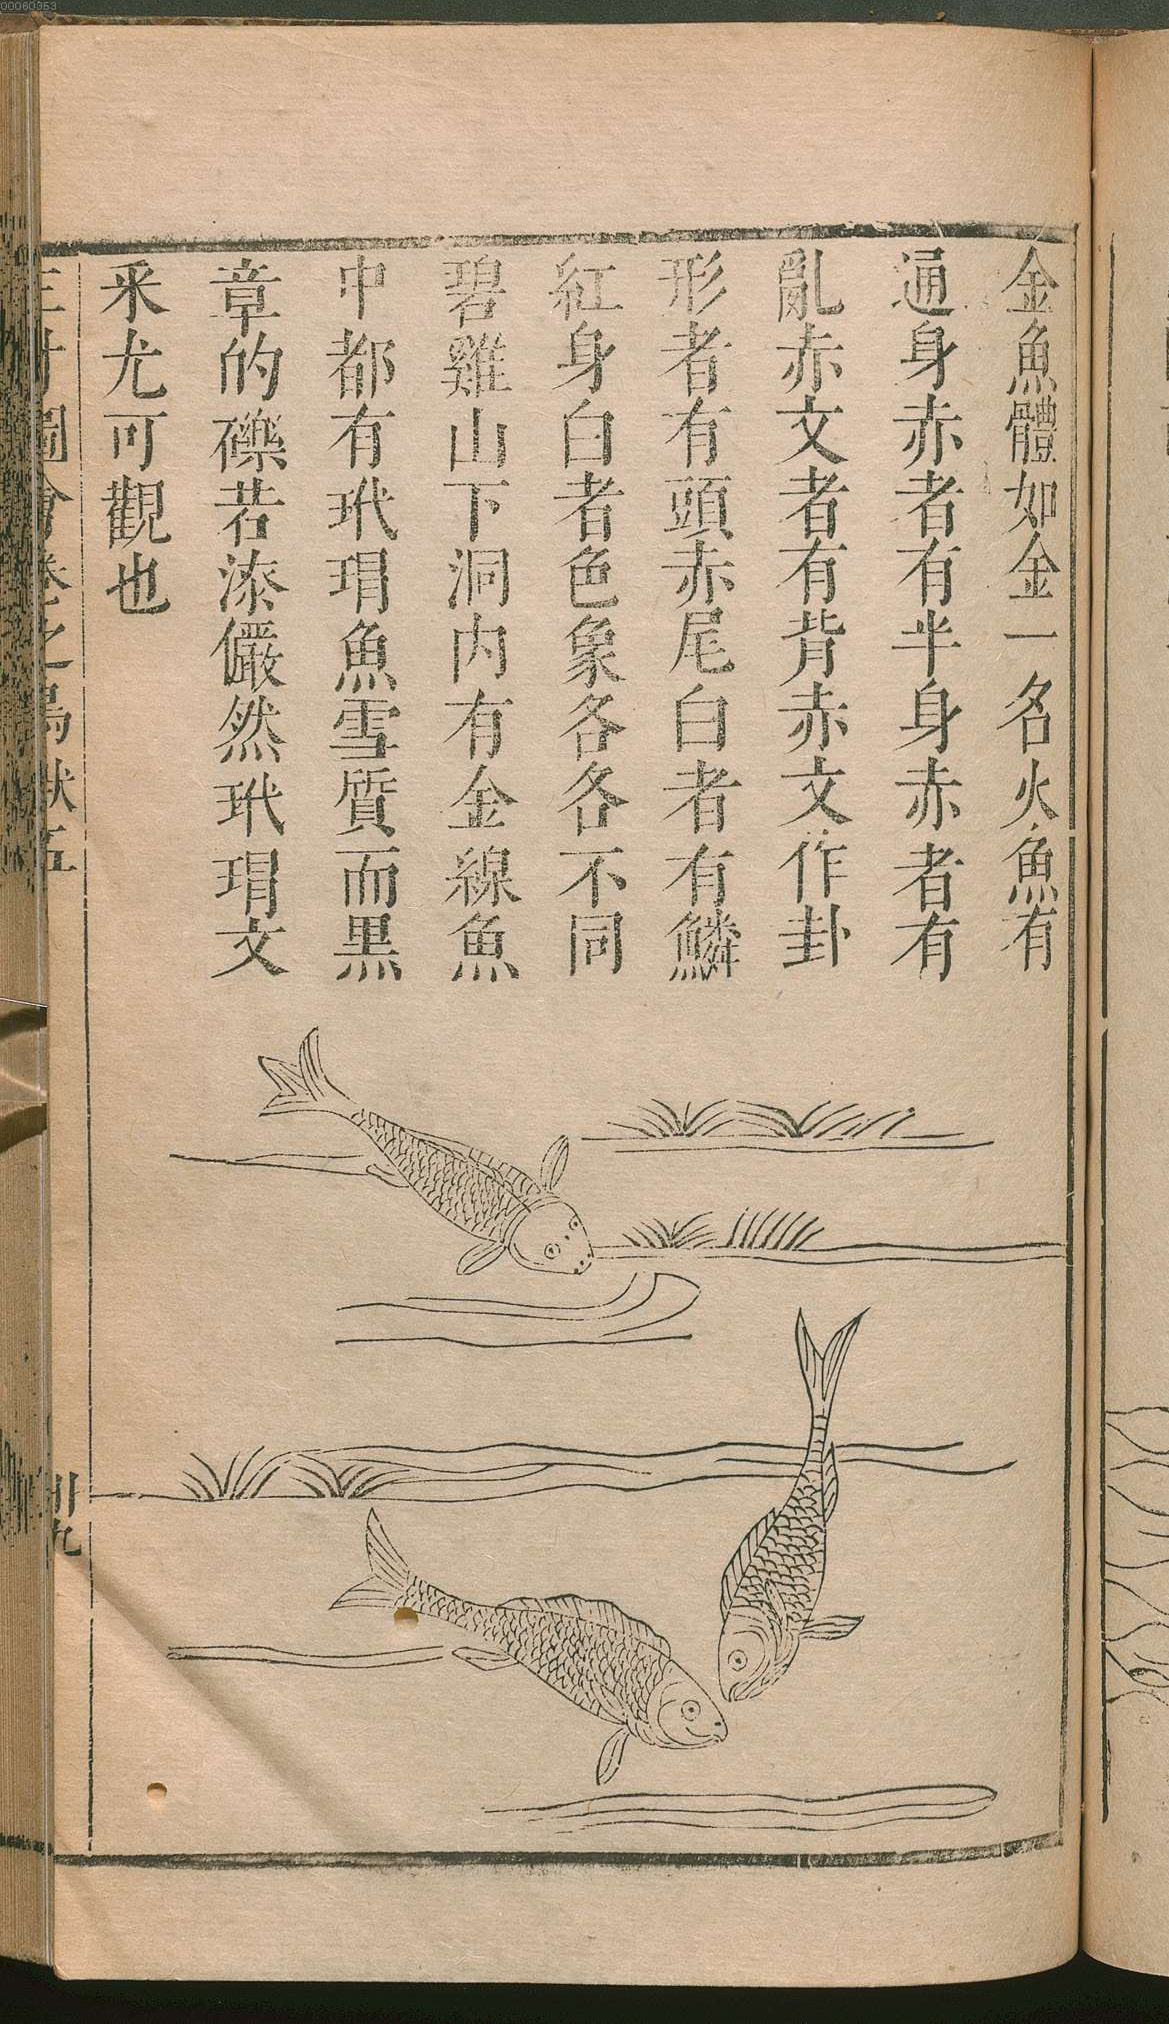 金魚體如金一名火魚有
通身赤者有半身赤者有
亂赤文者有背赤文作卦
形者有頭赤尾白者有鱗
紅身白者色象各各不同
碧雞山下洞內有金線魚
中都有玳瑁魚雪質而黑
章的礫若漆儼然玳瑁文
采尤可觀也
三才圖會卷之鳥獸五
卅九
00060353